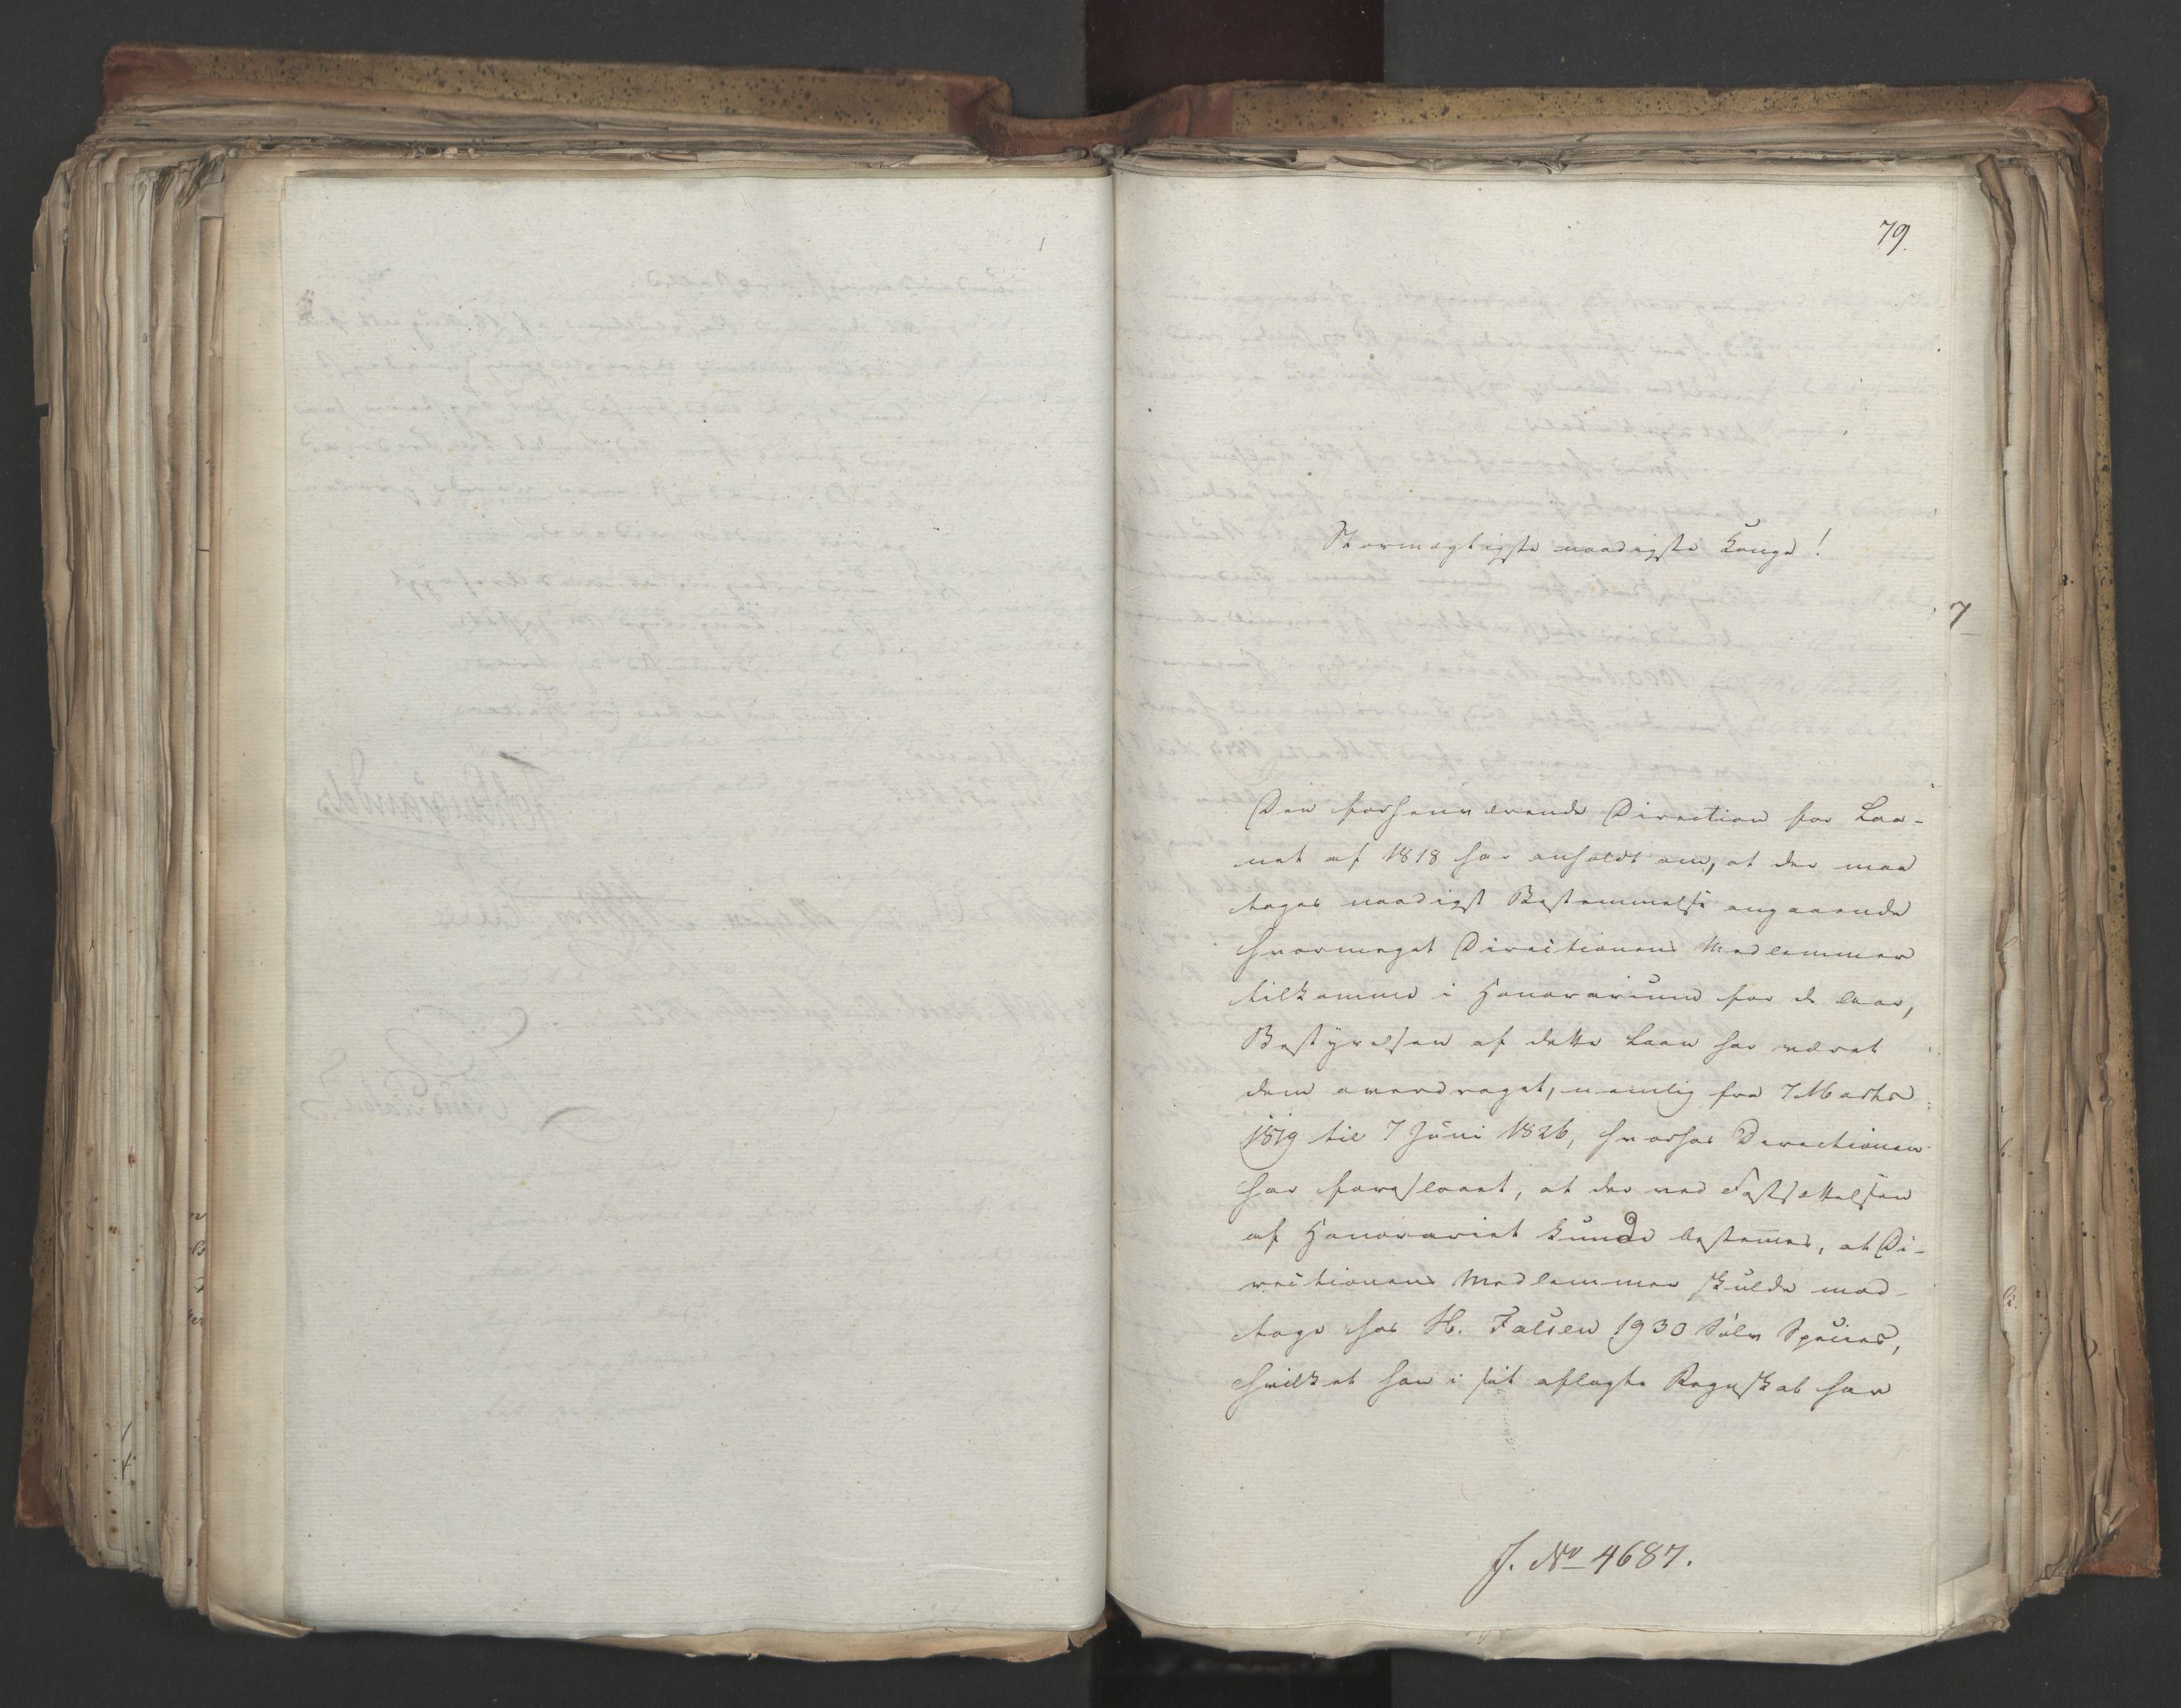 79.
Stormægtigste naadigste Konge!
7
Den forhenværende Direction for Laa-
net af 1818 har anholdt om, at der maa
tages naadigst Bestemmelse angaaende
hvormeget Directionens Medlemmer
tilkomme i Honorarium for de Aar,
Bestyrelsen af dette Laan har været
dem overdraget, nemlig fra 7 Marts
1819 til 7 Juni 1826, hvorhos Directionen
har foreslaaet, at der ved Fastsættelsen
af Honorariet kunde bestemes, at Di-
rectionens Medlemmer skulde mod-
tage hos H. Falsen 1930 Sølv Species,
hvilket han i sit aflagte Regnskab har
J. No 4687.